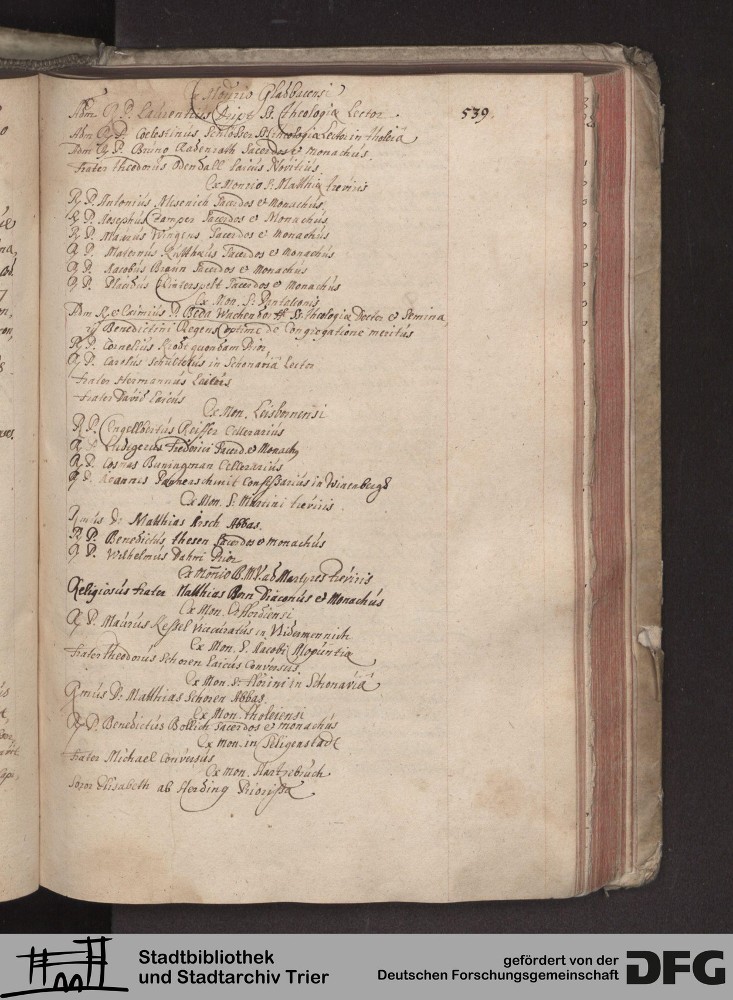 Ex Monrio Gladbacensi
Adm R. P. Laurentius Dript SS. theologiæ Lector.
539.
Adm R. P. Coelestinus Schlösser SS theologiæ Lector in tholeia
Adm R. P. Bruno Radenrath Sacerdos et monachus.
frater theodorus Dendall Laicus Novitius.
Ex Monrio S. Matthiæ treviris
R. P. Antonius Misenich Sacerdos et Monachus
R. P. Josephus Camper Sacerdos et Monachus
R. P. Maurus Wingens Sacerdos et Monachus
R. P. Maternus Sacerdos et Monachus
R. P. Jacobus Braun Sacerdos et Monachus
R. P. Placidus Winterspelt Sacerdos et Monachus
Ex Mon. S. Pantaleonis
Adm R. et Eximius P. Beda SS. theologiæ Doctor et Semina,
rij Benedictini Regens optime de Congregatione meritus
R. P. Cornelius quondam Prior
R. P. Carolus Schultetus in Schonaviâ Lector
frater Hermannus Laicus
frater David Laicus
Ex Mon. Leisbornensi
R. P. Engelbertus Reiffer Cellerarius
R. P. Ludgerus Frederici Sacerd. et Monach
R. P. Cosmas Buningman Cellerarius
R. P. Joannis Confessarius in
Ex Mon. S. Martini treviris
Rmus D. Matthias Irsch Abbas.
R. P. Benedictus thesen Sacerdos et monachus
R. P. Wilhelmus Dahm Prior
Ex Monrio B. M. V. ad Martyres treviris
Religiosus frater Matthias Bon Diaconus et Monachus
Ex Mon.
R. P. Maurus Kessel vicecuratus in Widermennich
Ex Mon. S. Jacobi Moguntiæ
frater theodorus Schoren Laicus Conversus
Ex Mon. S. Florini in Schonaviâ
Rmus D. Matthias Schoren Abbas.
Ex Mon. tholeiensi
R. P. Benedictus Bollich Sacerdos et monachus
Ex mon. in Seligenstadt
frater Michael Conversus
Ex mon. Hartzebruch
Soror Elisabeth ab Herding Priorissa
Stadtbibliothek
und Stadtarchiv Trier
gefördert von der
Deutschen Forschungsgemeinschaft
DFG